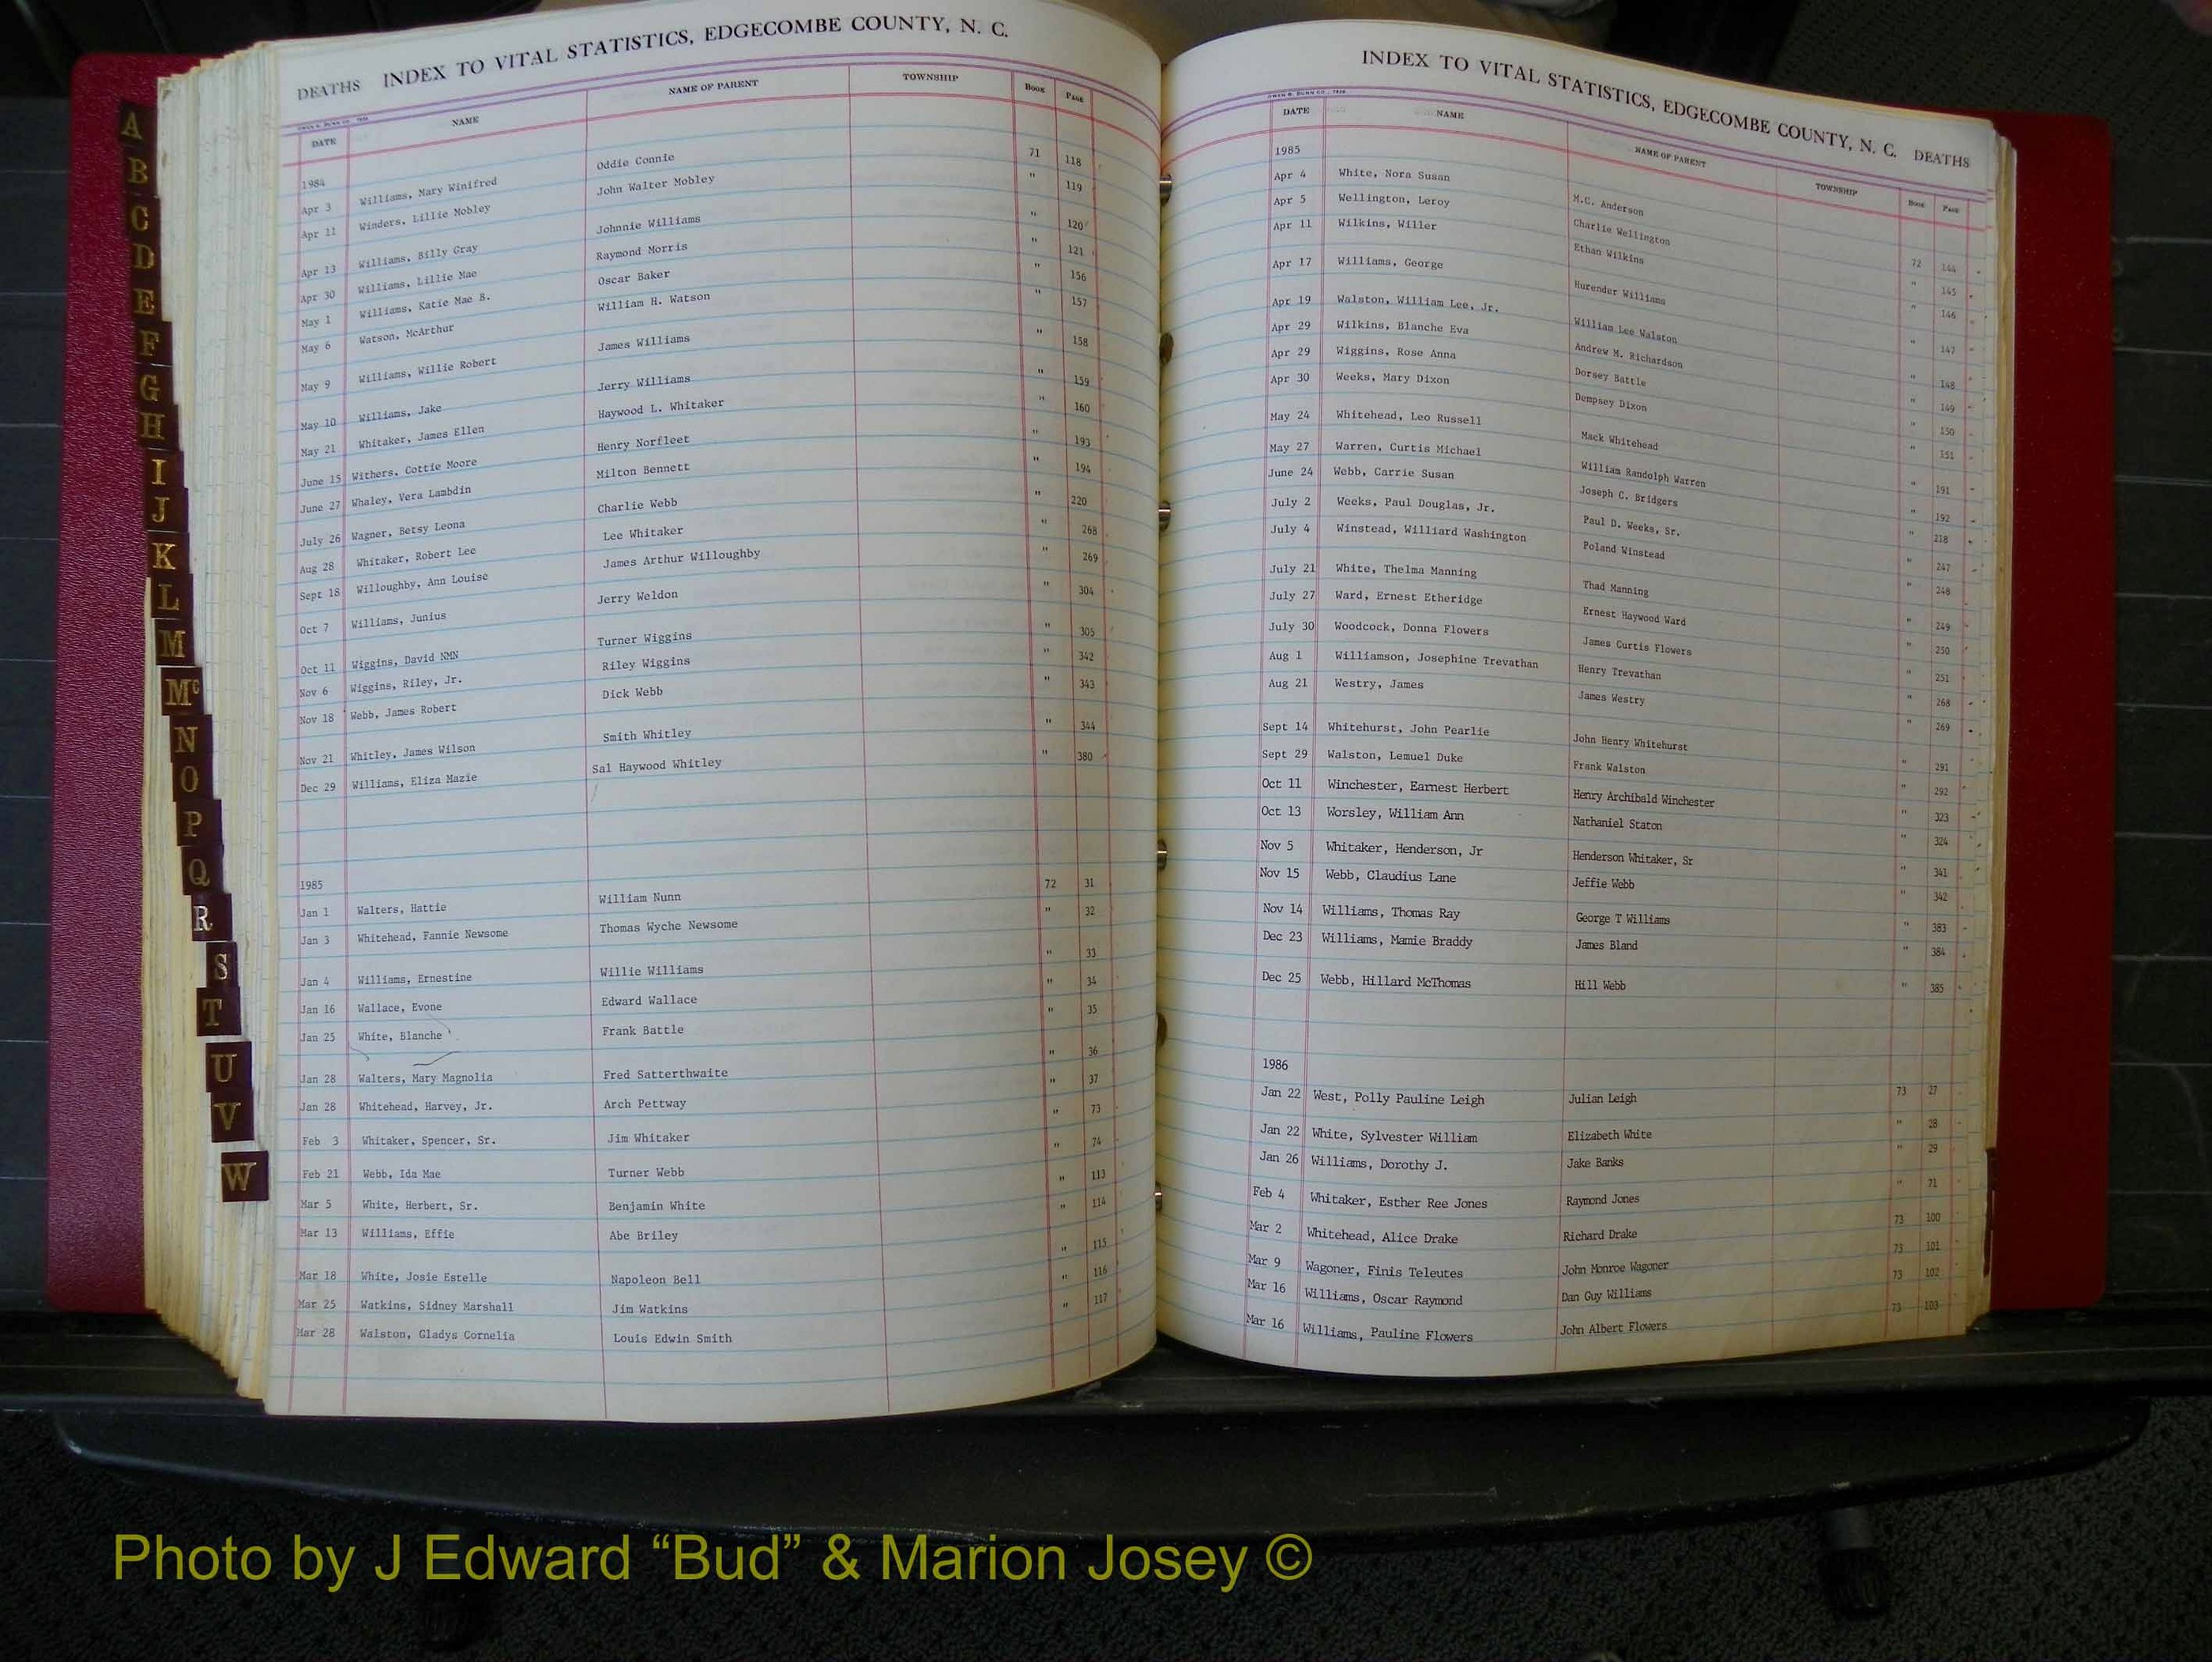 DEATHS INDEX TO VITAL STATISTICS, EDGECOMBE COUNTY, N. C.
DATE NAME NAME OF PARENT TOWNSHIP BOOK PAGE
1984
Apr 3 Williams, Mary Winifred Oddie Connie 71 118
Apr 11 Winders, Lillie Mobley John Walter Mobley " 119
Apr 13 Williams, Billy Gray Johnnie Williams " 120
Apr 30 Williams, Lillie Mae Raymond Morris " 121
May 1 Williams, Katie Mae B. Oscar Baker " 156
May 6 Watson, McArthur William H. Watson " 157
May 9 Williams, Willie Robert James Williams " 158
May 10 Williams, Jake Jerry Williams " 159
May 21 Whitaker, James Ellen Haywood L. Whitaker " 160
June 15 Withers, Cottie Moore Henry Norfleet " 193
June 27 Whaley, Vera Lambdin Milton Bennett " 194
July 26 Wagner, Betsy Leona Charlie Webb " 220
Aug 28 Whitaker, Robert Lee Lee Whitaker " 268
Sept 18 Willoughby, Ann Louise James Arthur Willoughby " 269
Oct 7 Williams, Junius Jerry Weldon " 304
Oct 11 Wiggins, David NMN Turner Wiggins " 305
Nov 6 Wiggins, Riley, Jr. Riley Wiggins " 342
Nov 18 Webb, James Robert Dick Webb " 343
Nov 21 Whitley, James Wilson Smith Whitley " 344
Dec 29 Williams, Eliza Mazie Sal Haywood Whitley " 380
1985
Jan 1 Walters, Hattie William Nunn 72 31
Jan 3 Whitehead, Fannie Newsome Thomas Wyche Newsome " 32
Jan 4 Williams, Ernestine Willie Williams " 33
Jan 16 Wallace, Evone Edward Wallace " 34
Jan 25 White, Blanche Frank Battle " 35
Jan 28 Walters, Mary Magnolia Fred Satterthwaite " 36
Jan 28 Whitehead, Harvey, Jr. Arch Pettway " 37
Feb 3 Whitaker, Spencer, Sr. Jim Whitaker " 73
Feb 21 Webb, Ida Mae Turner Webb " 74
Mar 5 White, Herbert, Sr. Benjamin White " 113
Mar 13 Williams, Effie Abe Briley " 114
Mar 18 White, Josie Estelle Napoleon Bell " 115
Mar 25 Watkins, Sidney Marshall Jim Watkins " 116
Mar 28 Walston, Gladys Cornelia Louis Edwin Smith " 117
INDEX TO VITAL STATISTICS, EDGECOMBE COUNTY, N. C. DEATHS
DATE NAME NAME OF PARENT TOWNSHIP BOOK PAGE
1985
Apr 4 White, Nora Susan M.C. Anderson 72 144
Apr 5 Wellington, Leroy Charlie Wellington " 145
Apr 11 Wilkins, Willer Ethan Wilkins " 146
Apr 17 Williams, George Hurender Williams " 147
Apr 19 Walston, William Lee, Jr. William Lee Walston " 148
Apr 29 Wilkins, Blanche Eva Andrew M. Richardson " 149
Apr 29 Wiggins, Rose Anna Dorsey Battle " 150
Apr 30 Weeks, Mary Dixon Dempsey Dixon " 151
May 24 Whitehead, Leo Russell Mack Whitehead " 191
May 27 Warren, Curtis Michael William Randolph Warren " 192
June 24 Webb, Carrie Susan Joseph C. Bridgers " 218
July 2 Weeks, Paul Douglas, Jr. Paul D. Weeks, Sr. " 247
July 4 Winstead, Williard Washington Poland Winstead " 248
July 21 White, Thelma Manning Thad Manning " 249
July 27 Ward, Ernest Etheridge Ernest Haywood Ward " 250
July 30 Woodcock, Donna Flowers James Curtis Flowers " 251
Aug 1 Williamson, Josephine Trevathan Henry Trevathan " 268
Aug 21 Westry, James James Westry " 269
Sept 14 Whitehurst, John Pearlie John Henry Whitehurst " 291
Sept 29 Walston, Lemuel Duke Frank Walston " 292
Oct 11 Winchester, Earnest Herbert Henry Archibald Winchester " 323
Oct 13 Worsley, William Ann Nathaniel Staton " 324
Nov 5 Whitaker, Henderson, Jr Henderson Whitaker, Sr " 341
Nov 15 Webb, Claudius Lane Jeffie Webb " 342
Nov 14 Williams, Thomas Ray George T Williams " 383
Dec 23 Williams, Mamie Braddy James Bland " 384
Dec 25 Webb, Hillard McThomas Hill Webb " 385
1986
Jan 22 West, Polly Pauline Leigh Julian Leigh 73 27
Jan 22 White, Sylvester William Elizabeth White " 28
Jan 26 Williams, Dorothy J. Jake Banks " 29
Feb 4 Whitaker, Esther Ree Jones Raymond Jones " 71
Mar 2 Whitehead, Alice Drake Richard Drake 73 100
Mar 9 Wagoner, Finis Teleutes John Monroe Wagoner 73 101
Mar 16 Williams, Oscar Raymond Dan Guy Williams 73 102
Mar 16 Williams, Pauline Flowers John Albert Flowers 73 103
A
B
C
D
E
F
G
H
I
J
K
L
M
Mc
N
O
P
Q
R
S
T
U
V
W
Photo by J Edward “Bud” & Marion Josey ©